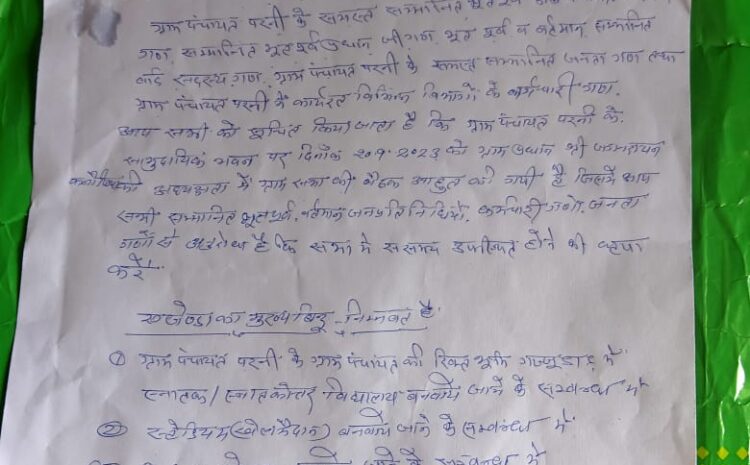 ग्राम पंचायत परनी के समस्त सम्मानित भूत पूर्व
गण, सम्मानित भूतपूर्व प्रधान जी गण, भूत पूर्व व वर्तमान सम्मानित
वार्ड सदस्य गण, ग्राम पंचायत परनी के समस्त सम्मानित जनता गण तथा
ग्राम पंचायत परनी में कार्यरत विभिन्न विभागों के कर्मचारी गण,
आप सभी को सूचित किया जाता है कि ग्राम पंचायत परनी के
सामुदायिक भवन पर दिनाँक 20.9.2023 को ग्राम प्रधान श्री
की अध्यक्षता में ग्राम सभा की बैठक आहूत की गयी है जिसमें आप
सभी सम्मानित भूतपूर्व, वर्तमान जनप्रतिनिधियों, कर्मचारी गणों, जनता
गणों से अनुरोध है कि सभा में ससमय उपस्थित होने की कृपा
करें।
एजेण्डा का मुख्य बिन्दु निम्नवत है
① ग्राम पंचायत परनी के ग्राम पंचायत की रिक्त भूमि में
स्नातक/स्नातकोत्तर विद्यालय बनवाये जाने के सम्बन्ध में
② स्टेडियम (खेल मैदान) बनवाये जाने के सम्बन्ध में
जाने के सम्बन्ध में